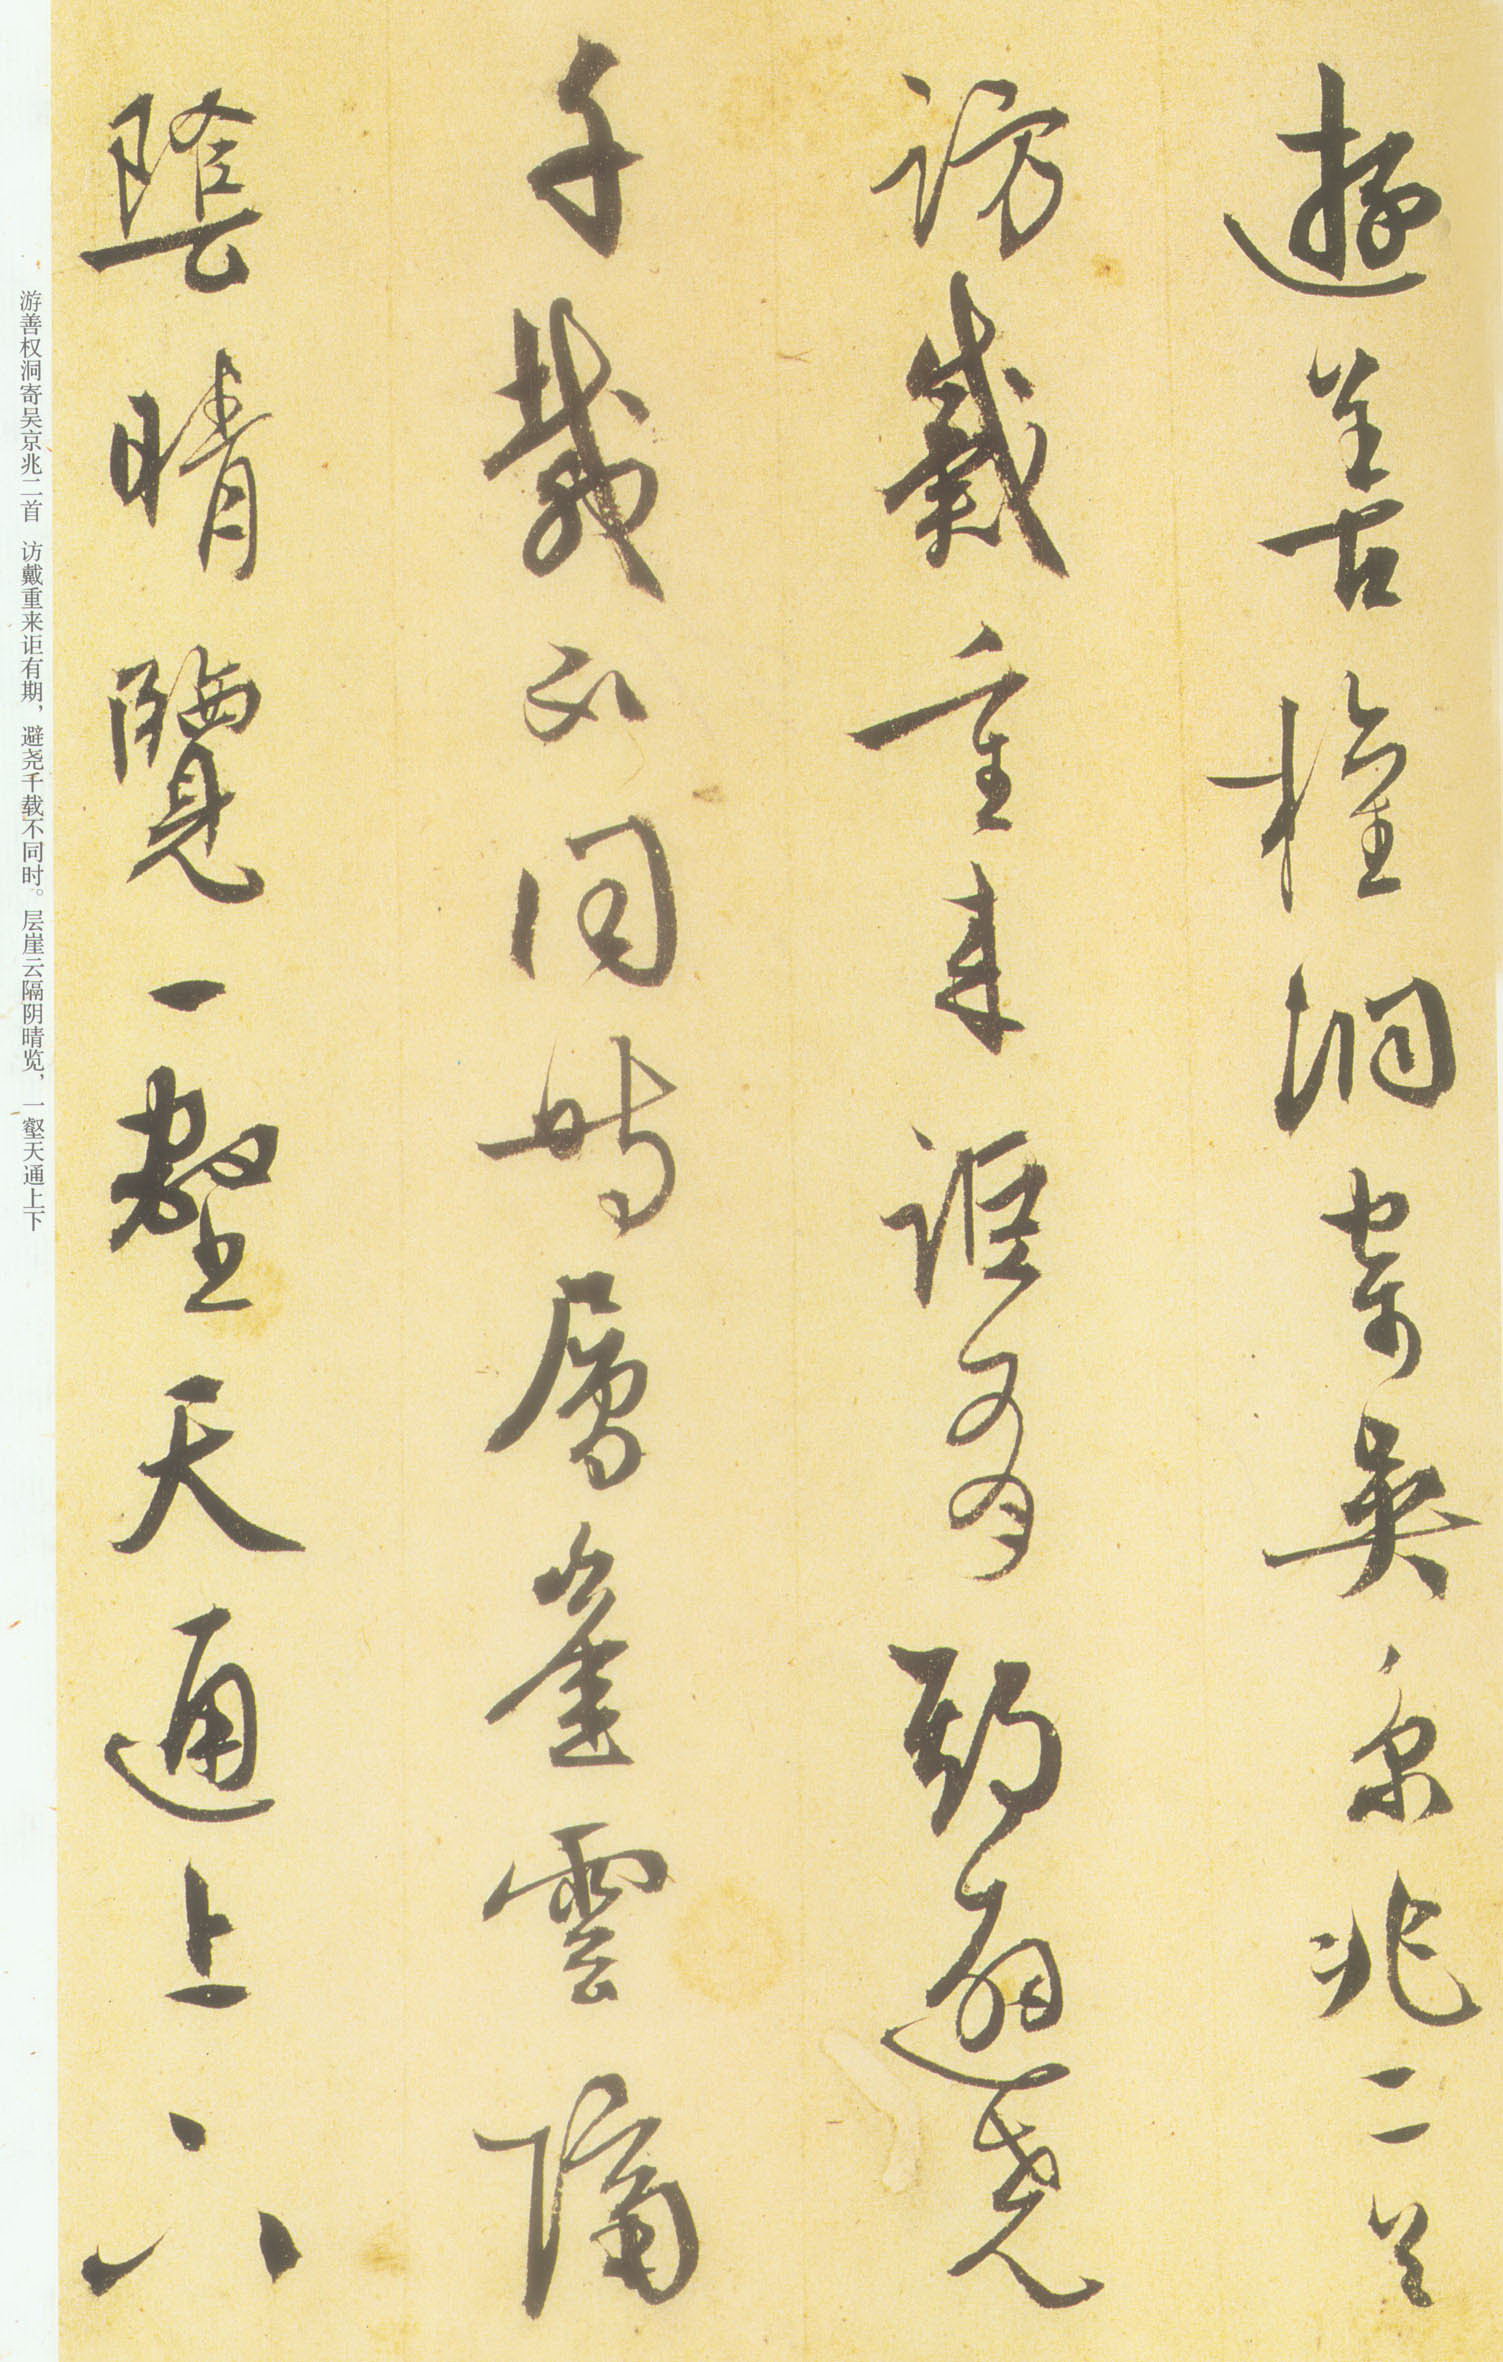 遊善權洞寄吳京兆二首
訪戴重来詎有期避堯
千載不同時層崖雲隔
陰晴覽一壑天通上下
游善权洞寄吴京兆二首 访戴重来讵有期，避尧千载不同时。层崖云隔阴晴览，一壑天通上下